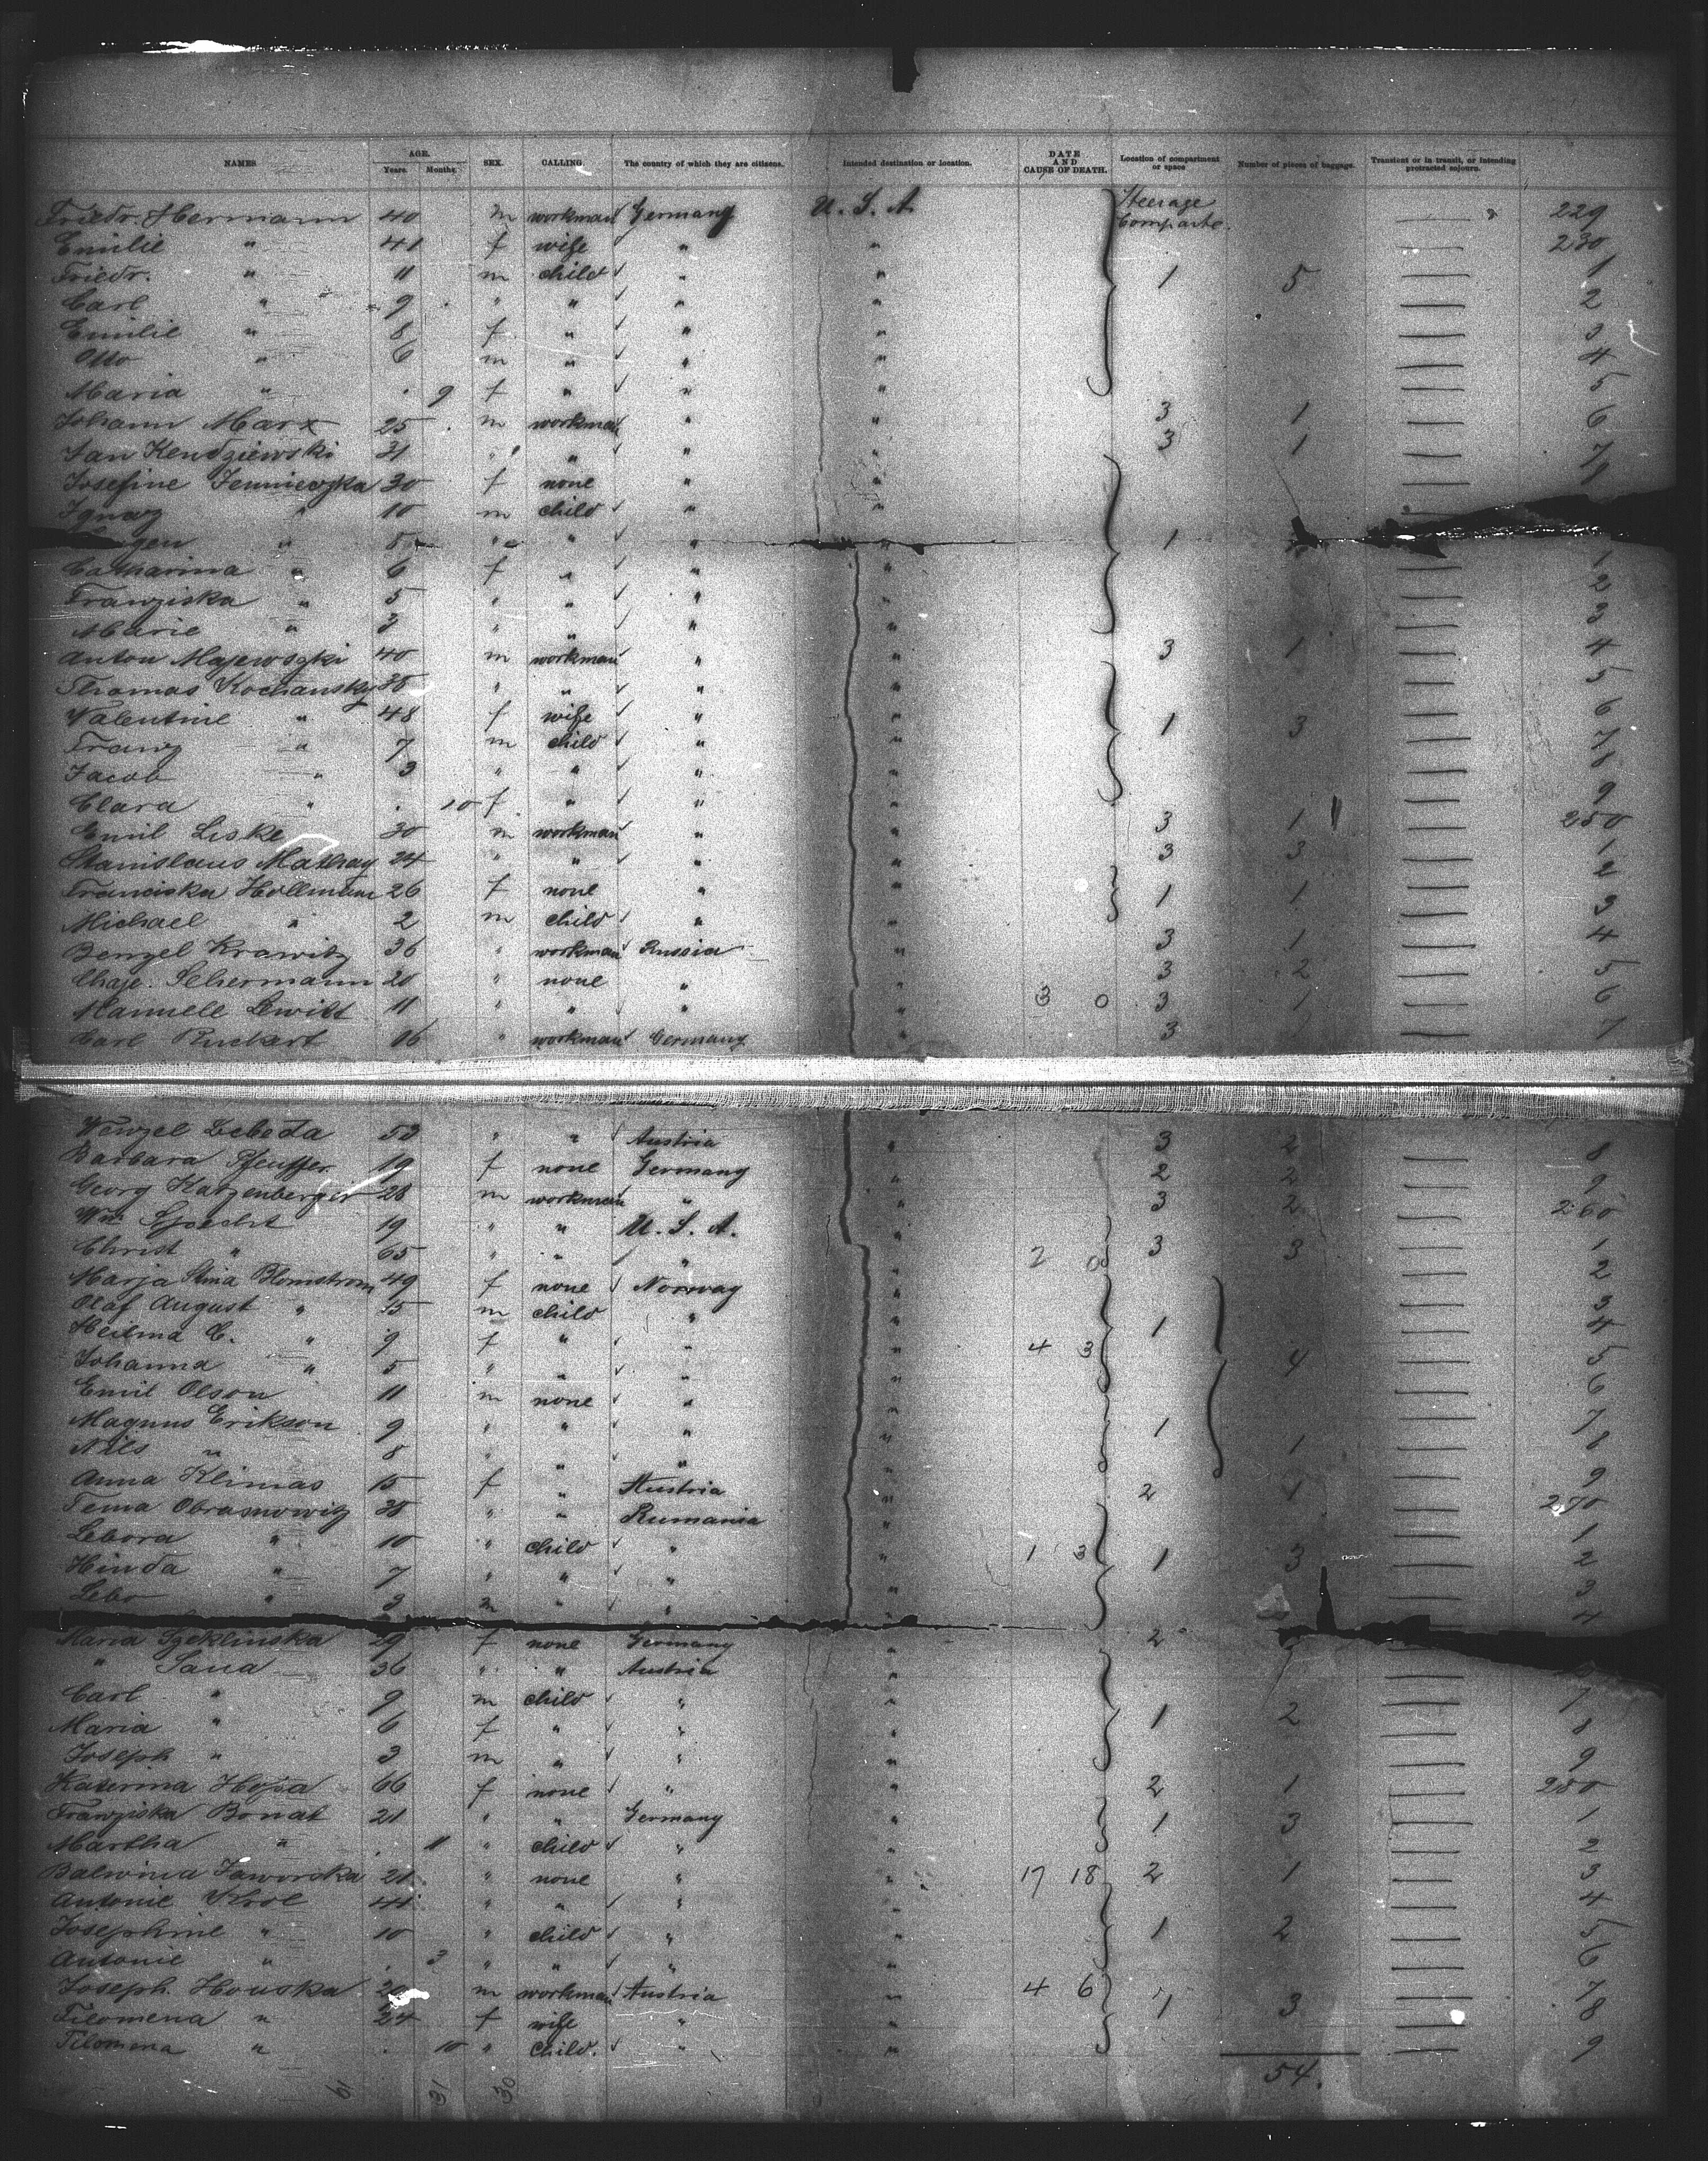 NAMES AGE. SEX. CALLING. The country of which they are citizens. Intended destination or location. DATE AND CAUSE OF DEATH. Location of compartment or space Number of pieces of baggage. Transient or in transit, or intending protracted sojourn.
Years. Months.
Friedr. Hermann 40 m workman Germany U. S. A. Steerage Comparte. 229
Emilie " 41 f wife " " 230
Friedr. " 11 m child " " 1 5 1
Carl " 9 " " " " 2
Emilie " 8 f " " " 3
Otto " 6 m " " " 4
Maria " . 9 f " " " 5
Johann Marx 25 m workman " " 3 1 6
Jan Kendziewski 31 " " " " 3 1 7
Josefine 30 f none " "
Ignaz " 10 m child " "
" " " " " 1
Catharina " 6 f " " " 1
Franziska " 5 " " " " 2
Marie " 3 " " " " 3
Anton Majewszki 40 m workman " " 3 1 4
Thomas Kochansky " " " " 5
Valentine " 48 f wife " " 1 3 6
Franz " 7 m child " " 7
Jacob " 3 " " " " 8
Clara " . 10 f " " " 9
Emil Liske 30 m workman " " 3 1 250
Stanislaus 24 " " " " 3 3 1
Franciska Hollmann 26 f none " " 1 1 2
Michael " 2 m child " " 3
Benzel Krawitz 36 " workman Russia " 3 1 4
Chaje Schermann 20 " none " " 3 2 5
Mannell Lewitt 11 " " " " 3 0 3 1 6
Carl Ruckert " workman Germany 3 7
Wenzel Lebeda 53 " " Austria " 3 2 8
Barbara Pfeuffer 19 f none Germany " 2 2 9
Georg Katzenberger 28 m workman " " 3 2 260
Wm Specht 19 " " U. S. A. " 3 3 1
Christ " 65 " " " " 2 0 2
Marja Stina Blomstrom 49 f none Norway " 3
Olaf August " 15 m child " " 1 4
" 9 f " " " 4 3 4 5
Johanna " 5 " " " " 6
Emil Olson 11 m none " " 7
Magnus Erikson 9 " " " " 1 1 8
Nils " 8 " " " "
Anna Klimas 15 f " Austria " 2 1 9
Tema Obrasnowitz " " Rumania " 270
Lebora " 10 " child " " 1
Hinda " 7 " " " " 1 3 1 3 2
Lebo " 3 m " " " 3
Maria Szeklinska 29 f none Germany " 2 4
" Sana 36 " " Austria "
Carl " 9 m child " " 1 2 7
Maria " 6 f " " " 8
Joseph " 3 m " " " 9
Katerina 66 f none " " 2 1 280
Franziska Bonat 21 " " Germany " 1 3 1
Martha " . 11 " child " " 2
Balwina Jaworska 21 " none " " 17 18 2 1 3
Antonie Krol 41 " " " " 4
Josephine " 10 " child " " 1 2 5
Antonie " . 3 " " " " 6
Joseph Houska 20 m workman Austria " 4 6 1 3 7
Filomena " 24 f wife " " 8
Filomena " . 10 " child. " " 9
61 31 30 54.